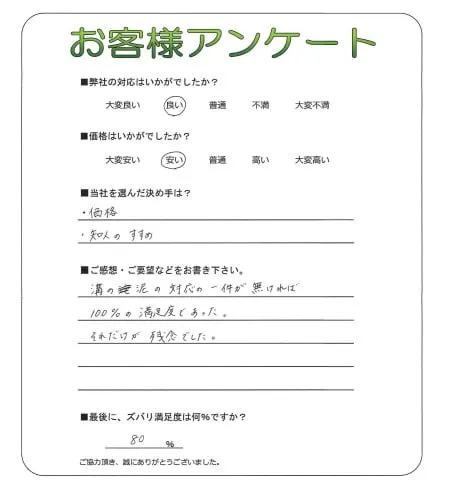 お客様アンケート
■弊社の対応はいかがでしたか？
大変良い 良い 普通 不満 大変不満
■価格はいかがでしたか？
大変安い 安い 普通 高い 大変高い
■当社を選んだ決め手は？
・価格
・知人のすすめ
■ご感想・ご要望などをお書き下さい。
溝の泥の対応の一件が無ければ
100%の満足度であった。
それだけが残念でした。
■最後に、ズバリ満足度は何%ですか？
80 %
ご協力頂き、誠にありがとうございました。